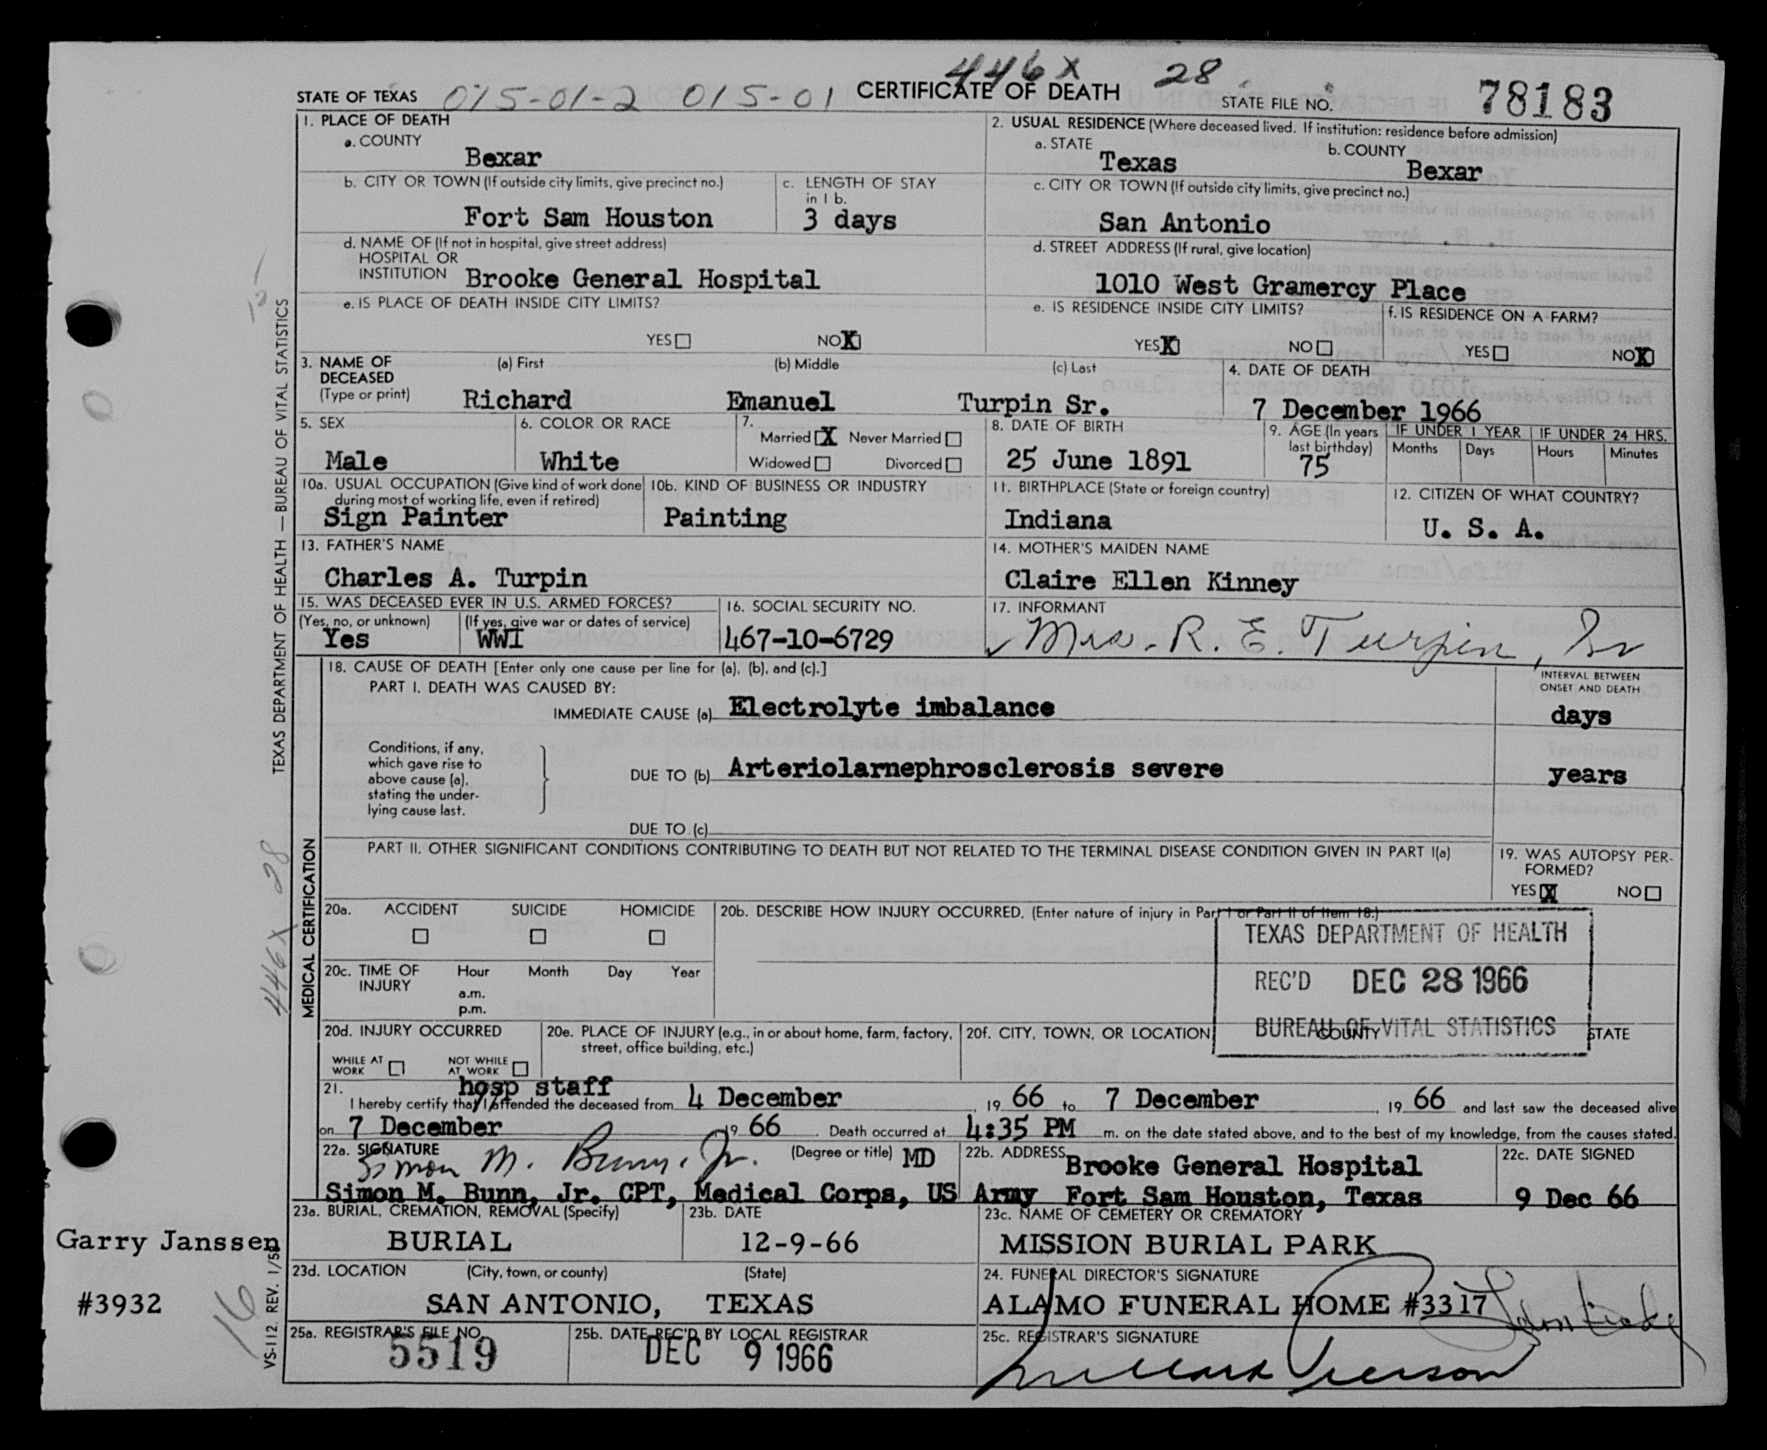 446X 28
STATE OF TEXAS 015-01-2 015-01 CERTIFICATE OF DEATH STATE FILE NO. 78183
1. PLACE OF DEATH
a. COUNTY
Bexar
2. USUAL RESIDENCE (Where deceased lived. If institution: residence before admission)
a. STATE
Texas
b. COUNTY
Bexar
b. CITY OR TOWN (If outside city limits, give precinct no.)
Fort Sam Houston
c. LENGTH OF STAY in 1 b.
3 days
c. CITY OR TOWN (If outside city limits, give precinct no.)
San Antonio
d. NAME OF (If not in hospital, give street address)
HOSPITAL OR
INSTITUTION Brooke General Hospital
d. STREET ADDRESS (If rural, give location)
1010 West Gramercy Place
e. IS PLACE OF DEATH INSIDE CITY LIMITS?
YES NO X
e. IS RESIDENCE INSIDE CITY LIMITS?
YES X NO
f. IS RESIDENCE ON A FARM?
YES NO X
3. NAME OF DECEASED (Type or print)
(a) First (b) Middle (c) Last
Richard Emanuel Turpin Sr.
4. DATE OF DEATH
7 December 1966
5. SEX
Male
6. COLOR OR RACE
White
7.
Married X Never Married
Widowed Divorced
8. DATE OF BIRTH
25 June 1891
9. AGE (In years last birthday)
75
IF UNDER 1 YEAR IF UNDER 24 HRS.
Months Days Hours Minutes
10a. USUAL OCCUPATION (Give kind of work done during most of working life, even if retired)
Sign Painter
10b. KIND OF BUSINESS OR INDUSTRY
Painting
11. BIRTHPLACE (State or foreign country)
Indiana
12. CITIZEN OF WHAT COUNTRY?
U. S. A.
13. FATHER'S NAME
Charles A. Turpin
14. MOTHER'S MAIDEN NAME
Claire Ellen Kinney
15. WAS DECEASED EVER IN U.S. ARMED FORCES?
(Yes, no, or unknown) (If yes, give war or dates of service)
Yes WWI
16. SOCIAL SECURITY NO.
467-10-6729
17. INFORMANT
Mrs. R. E. Turpin, Sr
18. CAUSE OF DEATH [Enter only one cause per line for (a), (b), and (c).]
PART I. DEATH WAS CAUSED BY:
INTERVAL BETWEEN ONSET AND DEATH
IMMEDIATE CAUSE (a) Electrolyte imbalance days
Conditions, if any, which gave rise to above cause (a), stating the underlying cause last.
DUE TO (b) Arteriolarnephrosclerosis severe years
DUE TO (c)
PART II. OTHER SIGNIFICANT CONDITIONS CONTRIBUTING TO DEATH BUT NOT RELATED TO THE TERMINAL DISEASE CONDITION GIVEN IN PART I(a)
19. WAS AUTOPSY PERFORMED?
YES X NO
20a. ACCIDENT SUICIDE HOMICIDE
20b. DESCRIBE HOW INJURY OCCURRED. (Enter nature of injury in Part I or Part II of Item 18.)
TEXAS DEPARTMENT OF HEALTH
REC'D DEC 28 1966
BUREAU OF VITAL STATISTICS
20c. TIME OF INJURY
Hour Month Day Year
a.m.
p.m.
20d. INJURY OCCURRED
WHILE AT WORK NOT WHILE AT WORK
20e. PLACE OF INJURY (e.g., in or about home, farm, factory, street, office building, etc.)
20f. CITY, TOWN, OR LOCATION COUNTY STATE
21. hosp staff
I hereby certify that I attended the deceased from 4 December, 19 66 to 7 December, 19 66 and last saw the deceased alive
on 7 December 19 66. Death occurred at 4:35 PM m. on the date stated above, and to the best of my knowledge, from the causes stated.
22a. SIGNATURE (Degree or title)
Simon M. Bunn, Jr. MD
Simon M. Bunn, Jr. CPT, Medical Corps, US Army
22b. ADDRESS
Brooke General Hospital
Fort Sam Houston, Texas
22c. DATE SIGNED
9 Dec 66
23a. BURIAL, CREMATION, REMOVAL (Specify)
BURIAL
23b. DATE
12-9-66
23c. NAME OF CEMETERY OR CREMATORY
MISSION BURIAL PARK
23d. LOCATION (City, town, or county) (State)
SAN ANTONIO, TEXAS
24. FUNERAL DIRECTOR'S SIGNATURE
ALAMO FUNERAL HOME #3317
25a. REGISTRAR'S FILE NO.
5519
25b. DATE REC'D BY LOCAL REGISTRAR
DEC 9 1966
25c. REGISTRAR'S SIGNATURE
Garry Janssen
#3932
16
446X 28
TEXAS DEPARTMENT OF HEALTH — BUREAU OF VITAL STATISTICS
MEDICAL CERTIFICATION
VS-112. REV. 1/58